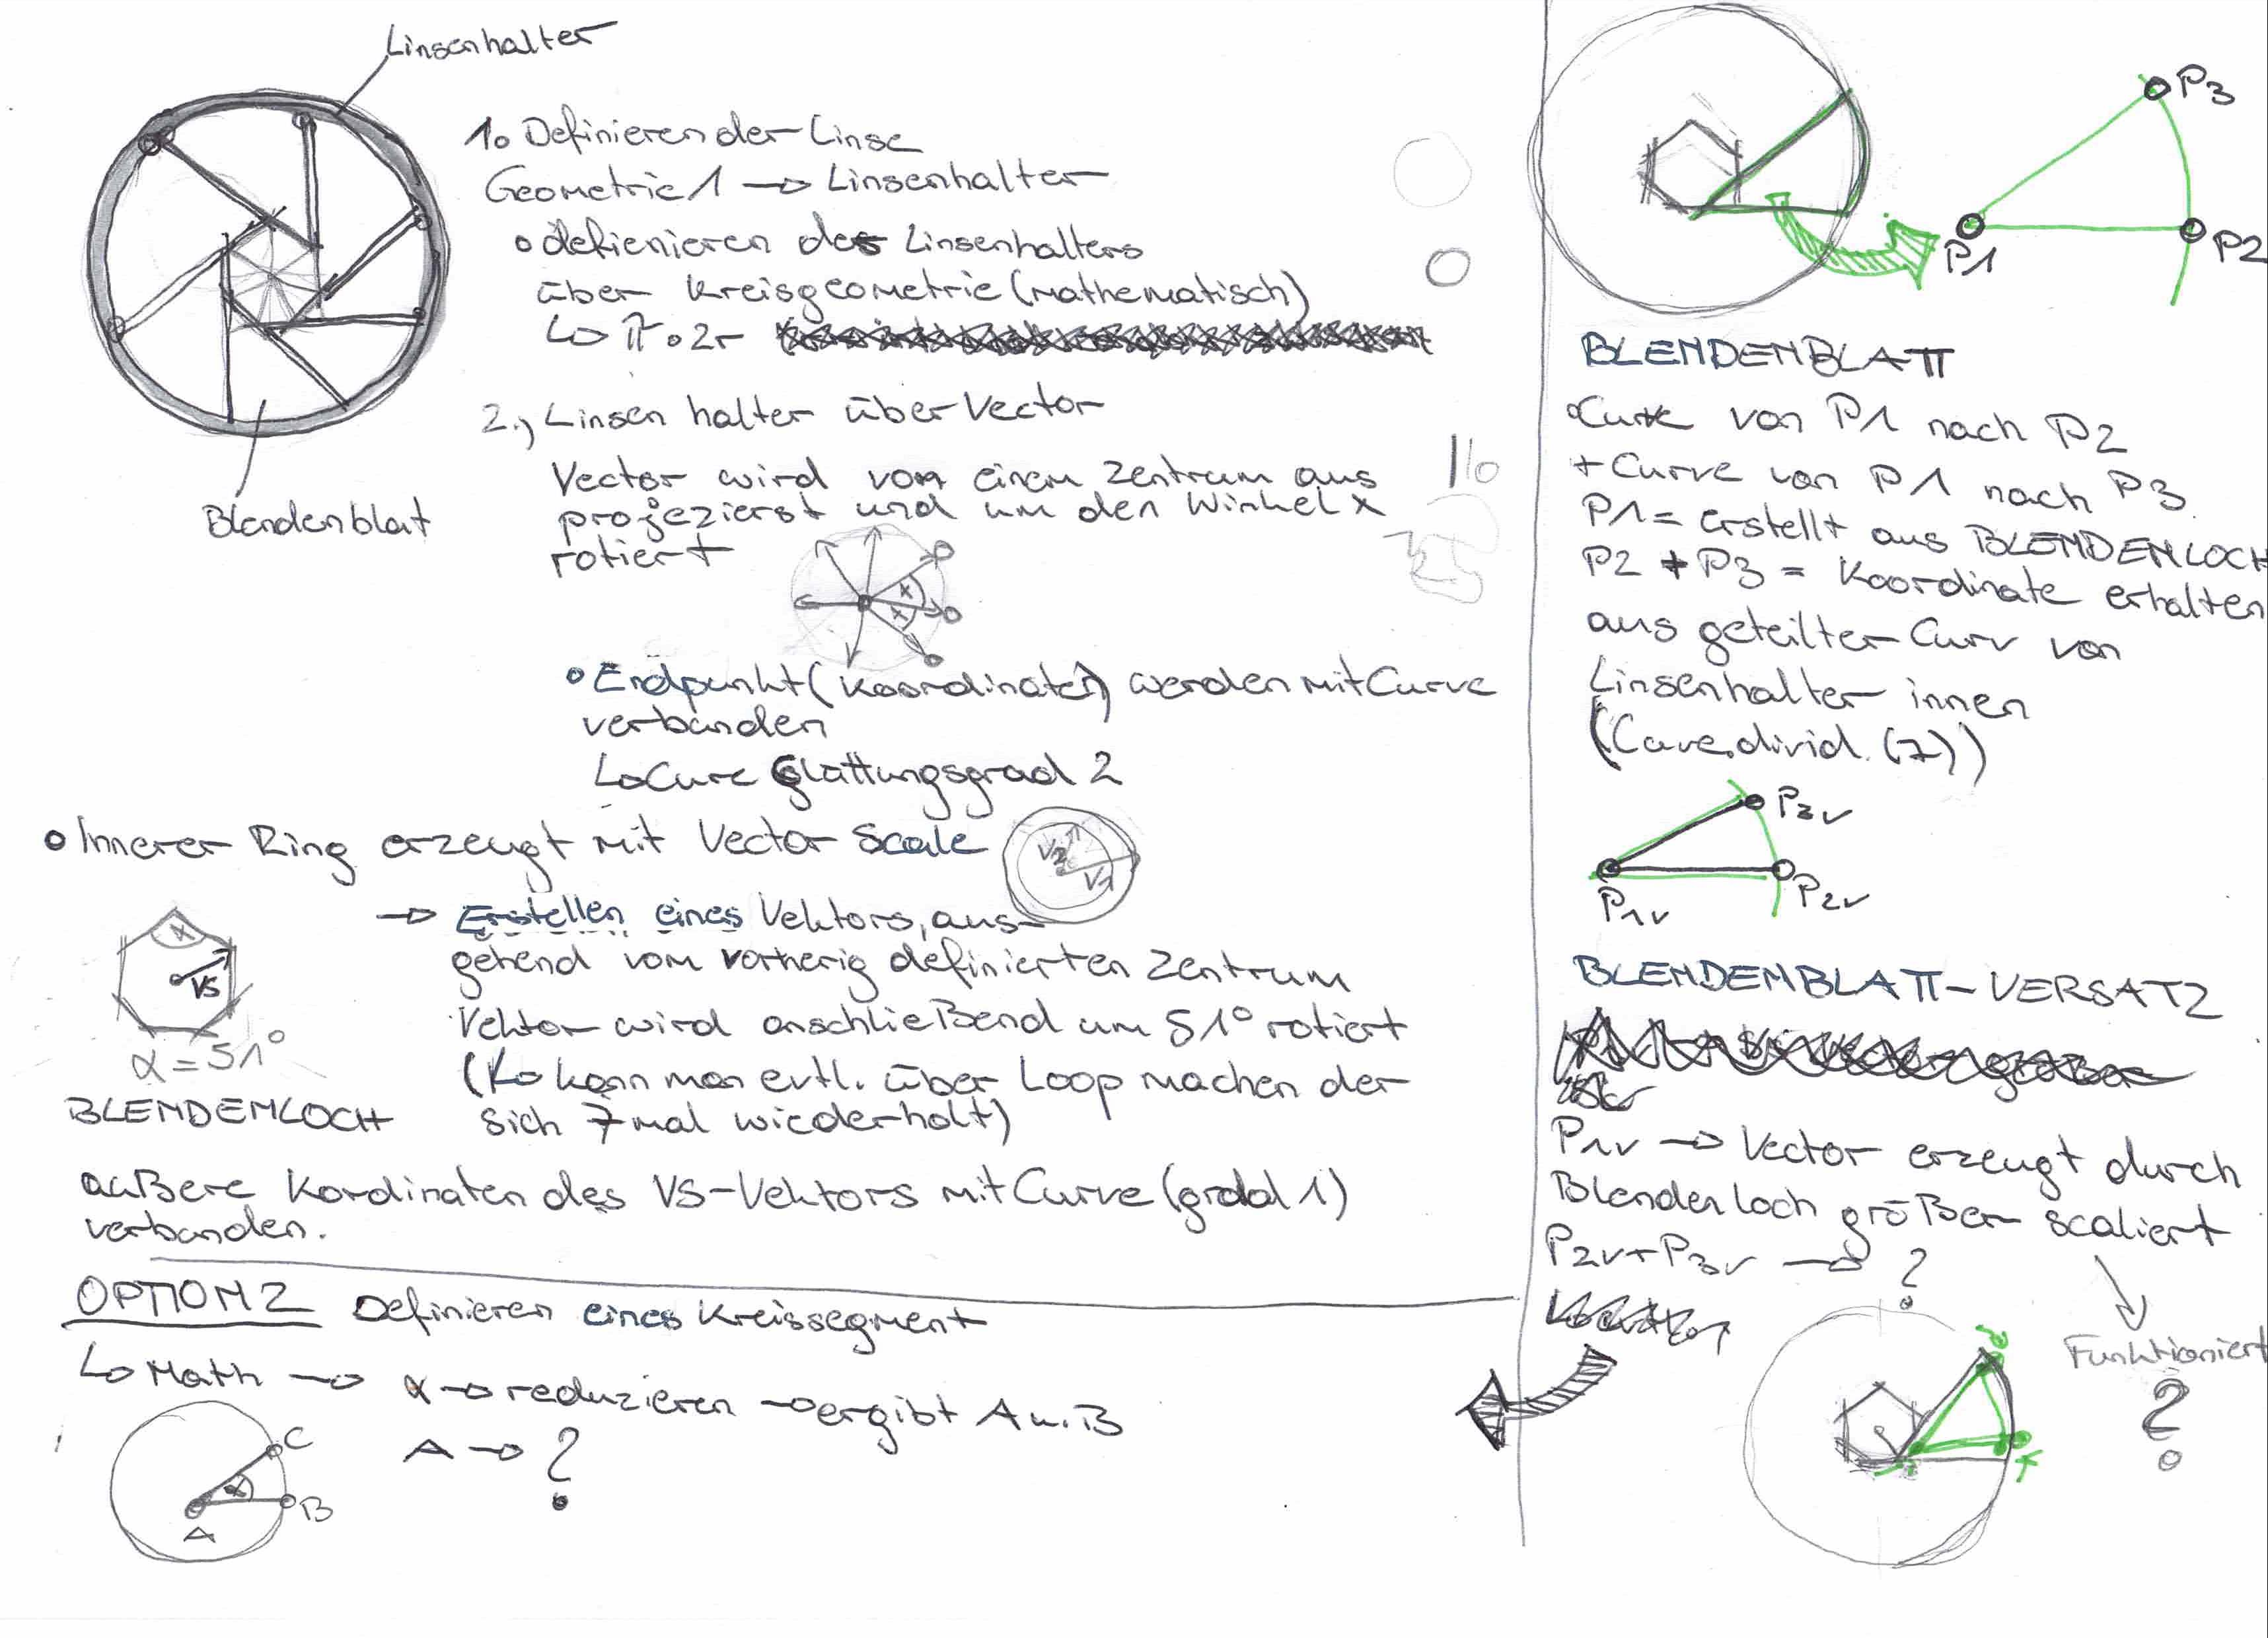 Linsenhalter
Blendenblat
1. Definieren der Linse
Geometrie 1 → Linsenhalter
• defienieren des Linsenhalters
über Kreisgeometrie (mathematisch)
↳ π · 2r
2.) Linsen halter über Vector
Vector wird von einem Zentrum aus
projezierst und um den Winkel x
rotiert
x
x
• Endpunkt (Koordinaten) werden mit Curve
verbunden
↳ Cure Glättungsgrad 2
• Innerer Ring erzeugt mit Vector Scale
V2
V1
→ Erstellen eines Vektors, aus-
gehend vom vorherig definierten Zentrum
Vektor wird anschließend um 51° rotiert
(↳ kann man evtl. über Loop machen der
sich 7 mal wiederholt)
α
VS
α = 51°
BLENDENLOCH
äußere Kordinaten des VS-Vektors mit Curve (gradal 1)
verbunden.
OPTION 2 Definieren eines Kreissegment
↳ Math → α → reduzieren → ergibt A u. B
A → ?
C
α
B
A
P3
P1
P2
BLENDENBLATT
• Curve von P1 nach P2
+ Curve von P1 nach P3
P1 = erstellt aus BLENDENLOCH
P2 + P3 = Koordinate erhalten
aus geteilter Curv von
Linsenhalter innen
(Curve.divid. (7))
P3v
P1v
P2v
BLENDENBLATT-VERSATZ
P1v → Vector erzeugt durch
Blendenloch größer scaliert
P2v + P3v → ?
Funktioniert
?